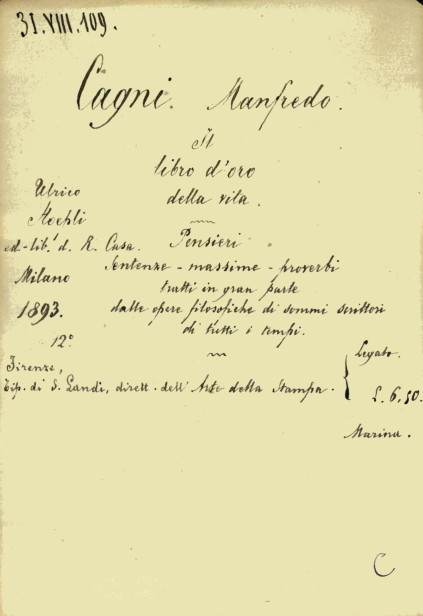 31.VIII.109.
Cagni. Manfredo.
Il
libro d'oro
della vita.
Ulrico
Hoepli
ed-lib. d. R. Casa.
Milano
1893.
12º
Pensieri
Sentenze - massime - proverbi
tratti in gran parte
dalle opere filosofiche di sommi scrittori
di tutti i tempi.
Firenze,
Tip. di S. Landi, dirett. dell'Arte della Stampa.
Legato.
L. 6,50.
Marina.
C